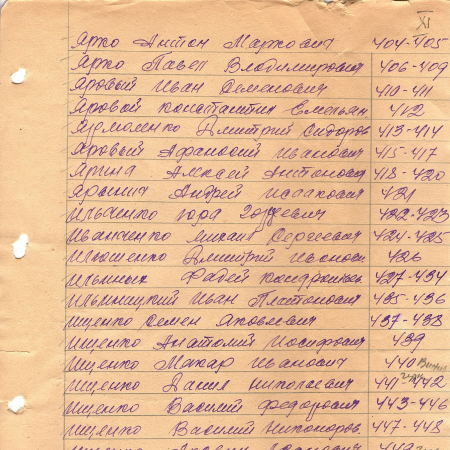 XI
Ярко Антон Маркович 404-405
Ярко Павел Владимирович 406-409
Яровый Иван Семенович 410-411
Яровой Константин Емельян 412
Ярмоленко Дмитрий Сидоров 413-414
Яровый Афанасий Иванович 415-417
Ярина Алексей Антонович 418-420
Андрей Исаакович 421
Ильченко 422-423
Иванченко Михаил Сергеевич 424-425
Ильюшенко Дмитрий 426
Ильиных Фадей 427-434
Ильницкий Иван Платонович 435-436
Ищенко Семен Яковлевич 437-438
Ищенко Анатолий Иосифович 439
Ищенко Макар Иванович 440
Ищенко Данил Николаевич 441-442
Ищенко Василий Федорович 443-446
Ищенко Василий Никоноров. 447-448